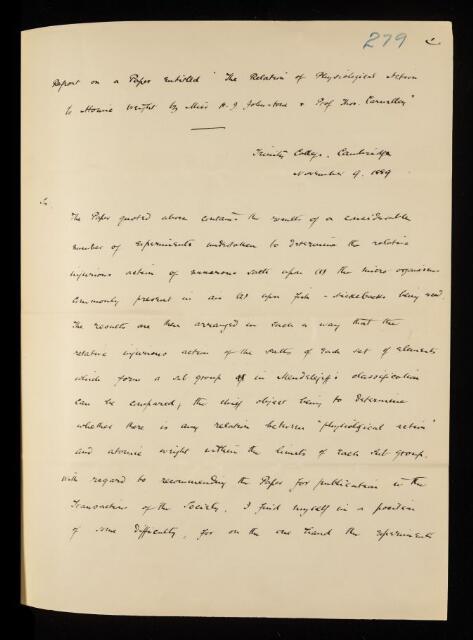 279
Report on a Paper entitled "The Relation of Physiological Action
to Atomic weight by Miss H. J. Johnstone & Prof Thos. Carnelley"
Trinity College. Cambridge
November 9. 1889
The Paper quoted above contains the results of a considerable
number of experiments undertaken to determine the relative
injurious action of numerous salts upon (1) the micro organisms
commonly present in air (2) upon fish - sticklebacks being used.
The results are then arranged in such a way that the
relative injurious action of the salts of each set of elements
which form a sub group in Mendelejeff's classification
can be compared; the chief object being to determine
whether there is any relation between "physiological action"
and atomic weight within the limits of each sub group.
With regard to recommending the Paper for publication in the
Transactions of the Society, I find myself in a position
of some difficulty, for on the one hand the experiments